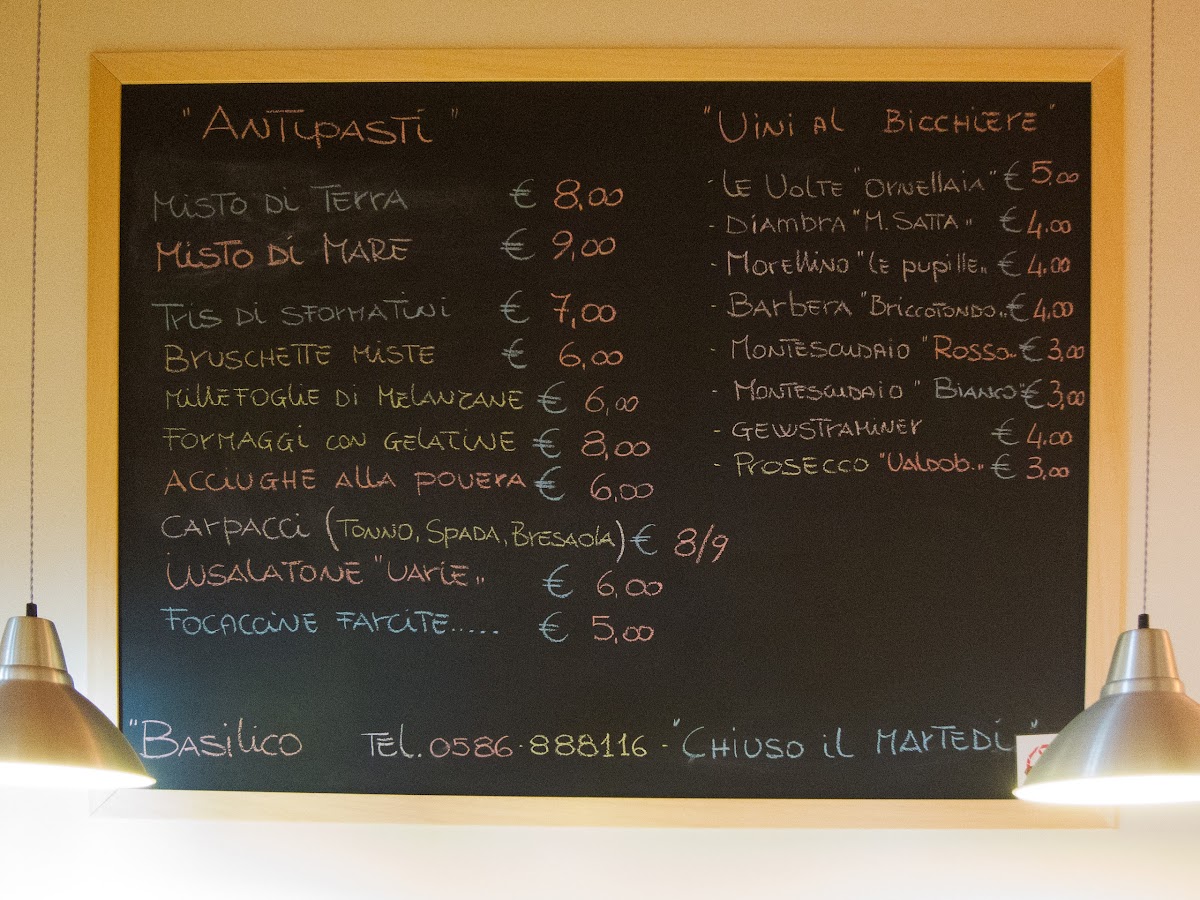 "Antipasti"
Misto di Terra € 8,00
Misto di Mare € 9,00
Tris di sformatini € 7,00
Bruschette miste € 6,00
Millefoglie di melanzane € 6,00
Formaggi con gelatine € 8,00
Acciughe alla povera € 6,00
Carpacci (Tonno, Spada, Bresaola) € 8/9
Insalatone "varie" € 6,00
Focaccine farcite..... € 5,00
"Vini al Bicchiere"
- Le Volte "Ornellaia" € 5,00
- Diambra "M. Satta" € 4,00
- Morellino "le pupille" € 4,00
- Barbera "Briccotondo" € 4,00
- Montescudaio "Rosso" € 3,00
- Montescudaio "Bianco" € 3,00
- Gewstraminer € 4,00
- Prosecco "Valdob.." € 3,00
"Basilico Tel. 0586-888116 - "Chiuso il Martedì"